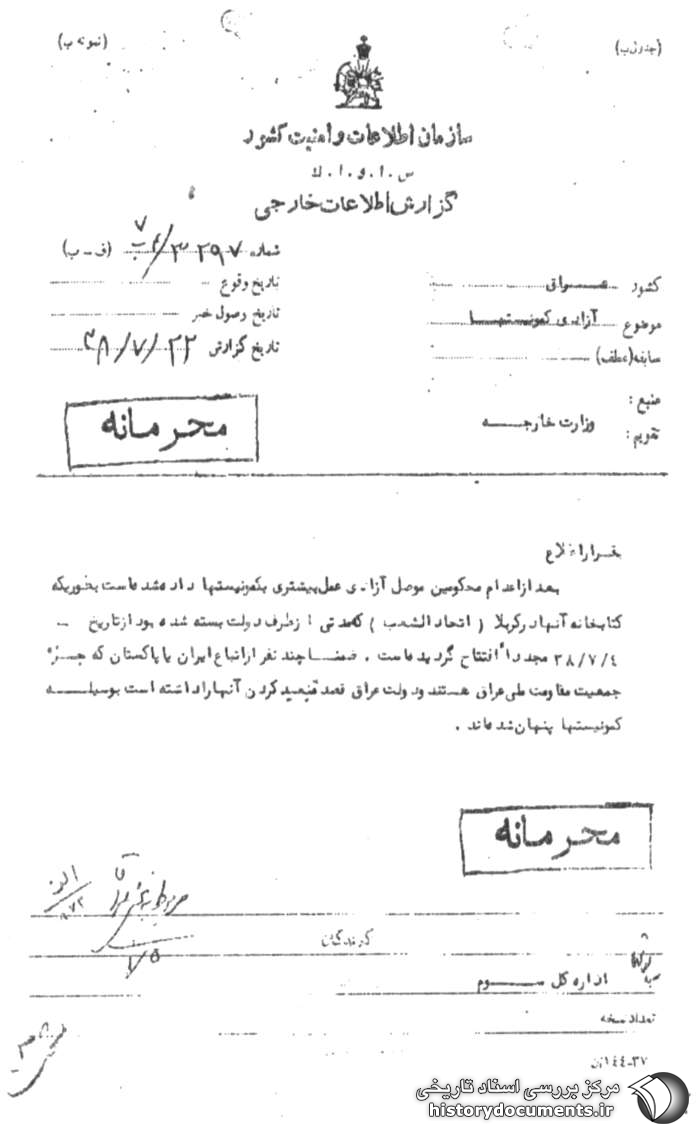 (جدول ب)
(نمونه ب)
سازمان اطلاعات و امنیت کشور
س . ا . و . ا . ک
گزارش اطلاعات خارجی
شماره ۳۲۹۷ (ف - ب)
کشور عراق
تاریخ وقوع
تاریخ وصول خبر
موضوع آزادی کمونیستها
تاریخ گزارش ۳۸/۷/۲۲
سابقه (عطف)
منبع :
وزارت خارجه
تقویم :
محرمانه
بقرار اطلاع
بعد از اعدام محکومین موصل آزادی عمل بیشتری بکمونیستها داده شده است بطوریکه
کتابخانه آنها در کربلا ( اتحاد الشعب ) که مدتی از طرف دولت بسته شده بود از تاریخ -
۳۸/۷/۴ مجدداً افتتاح گردیده است . ضمناً چند نفر از اتباع ایران یا پاکستان که جزء
جمعیت مقاومت ملی عراق هستند و دولت عراق قصد تبعید کردن آنها را داشته است بوسیله
کمونیستها پنهان شده اند .
محرمانه
گیرندگان
اداره کل سوم
تعداد نسخه
۳۷-۱۴۴
مرکز بررسی اسناد تاریخی
historydocuments.ir